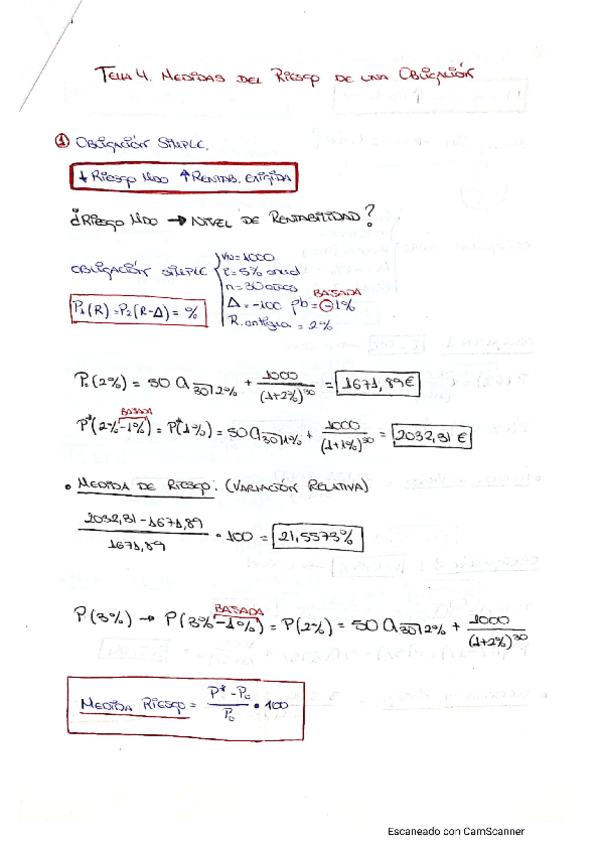 TEMA 4. MEDIDAS DEL RIESGO DE UNA OBLIGACIÓN
① OBLIGACIÓN SIMPLE.
↓ RIESGO MDO ↑ RENTAB. EXIGIDA
¿RIESGO MDO → NIVEL DE RENTABILIDAD?
OBLIGACIÓN SIMPLE
VN=1000
r=5% anual
n=30 años
Δ=-100 pb=-1% BAJADA
R.antigua=2%
P₁(R)=P₂(R-Δ)=%
P₀(2%) = 50 a 30⌉2% + 1000/(1+2%)^30 = 1671,89€
P*(2%-1%) = P*(1%) = 50 a 30⌉1% + 1000/(1+1%)^30 = 2032,31€
BAJADA
• MEDIDA DE RIESGO: (VARIACIÓN RELATIVA)
2032,31-1671,89/1671,89 • 100 = 21,5573%
BAJADA
P(3%) → P(3%-1%) = P(2%) = 50 a 30⌉2% + 1000/(1+2%)^30
MEDIDA RIESGO = P*-P₀/P₀ • 100
Escaneado con CamScanner